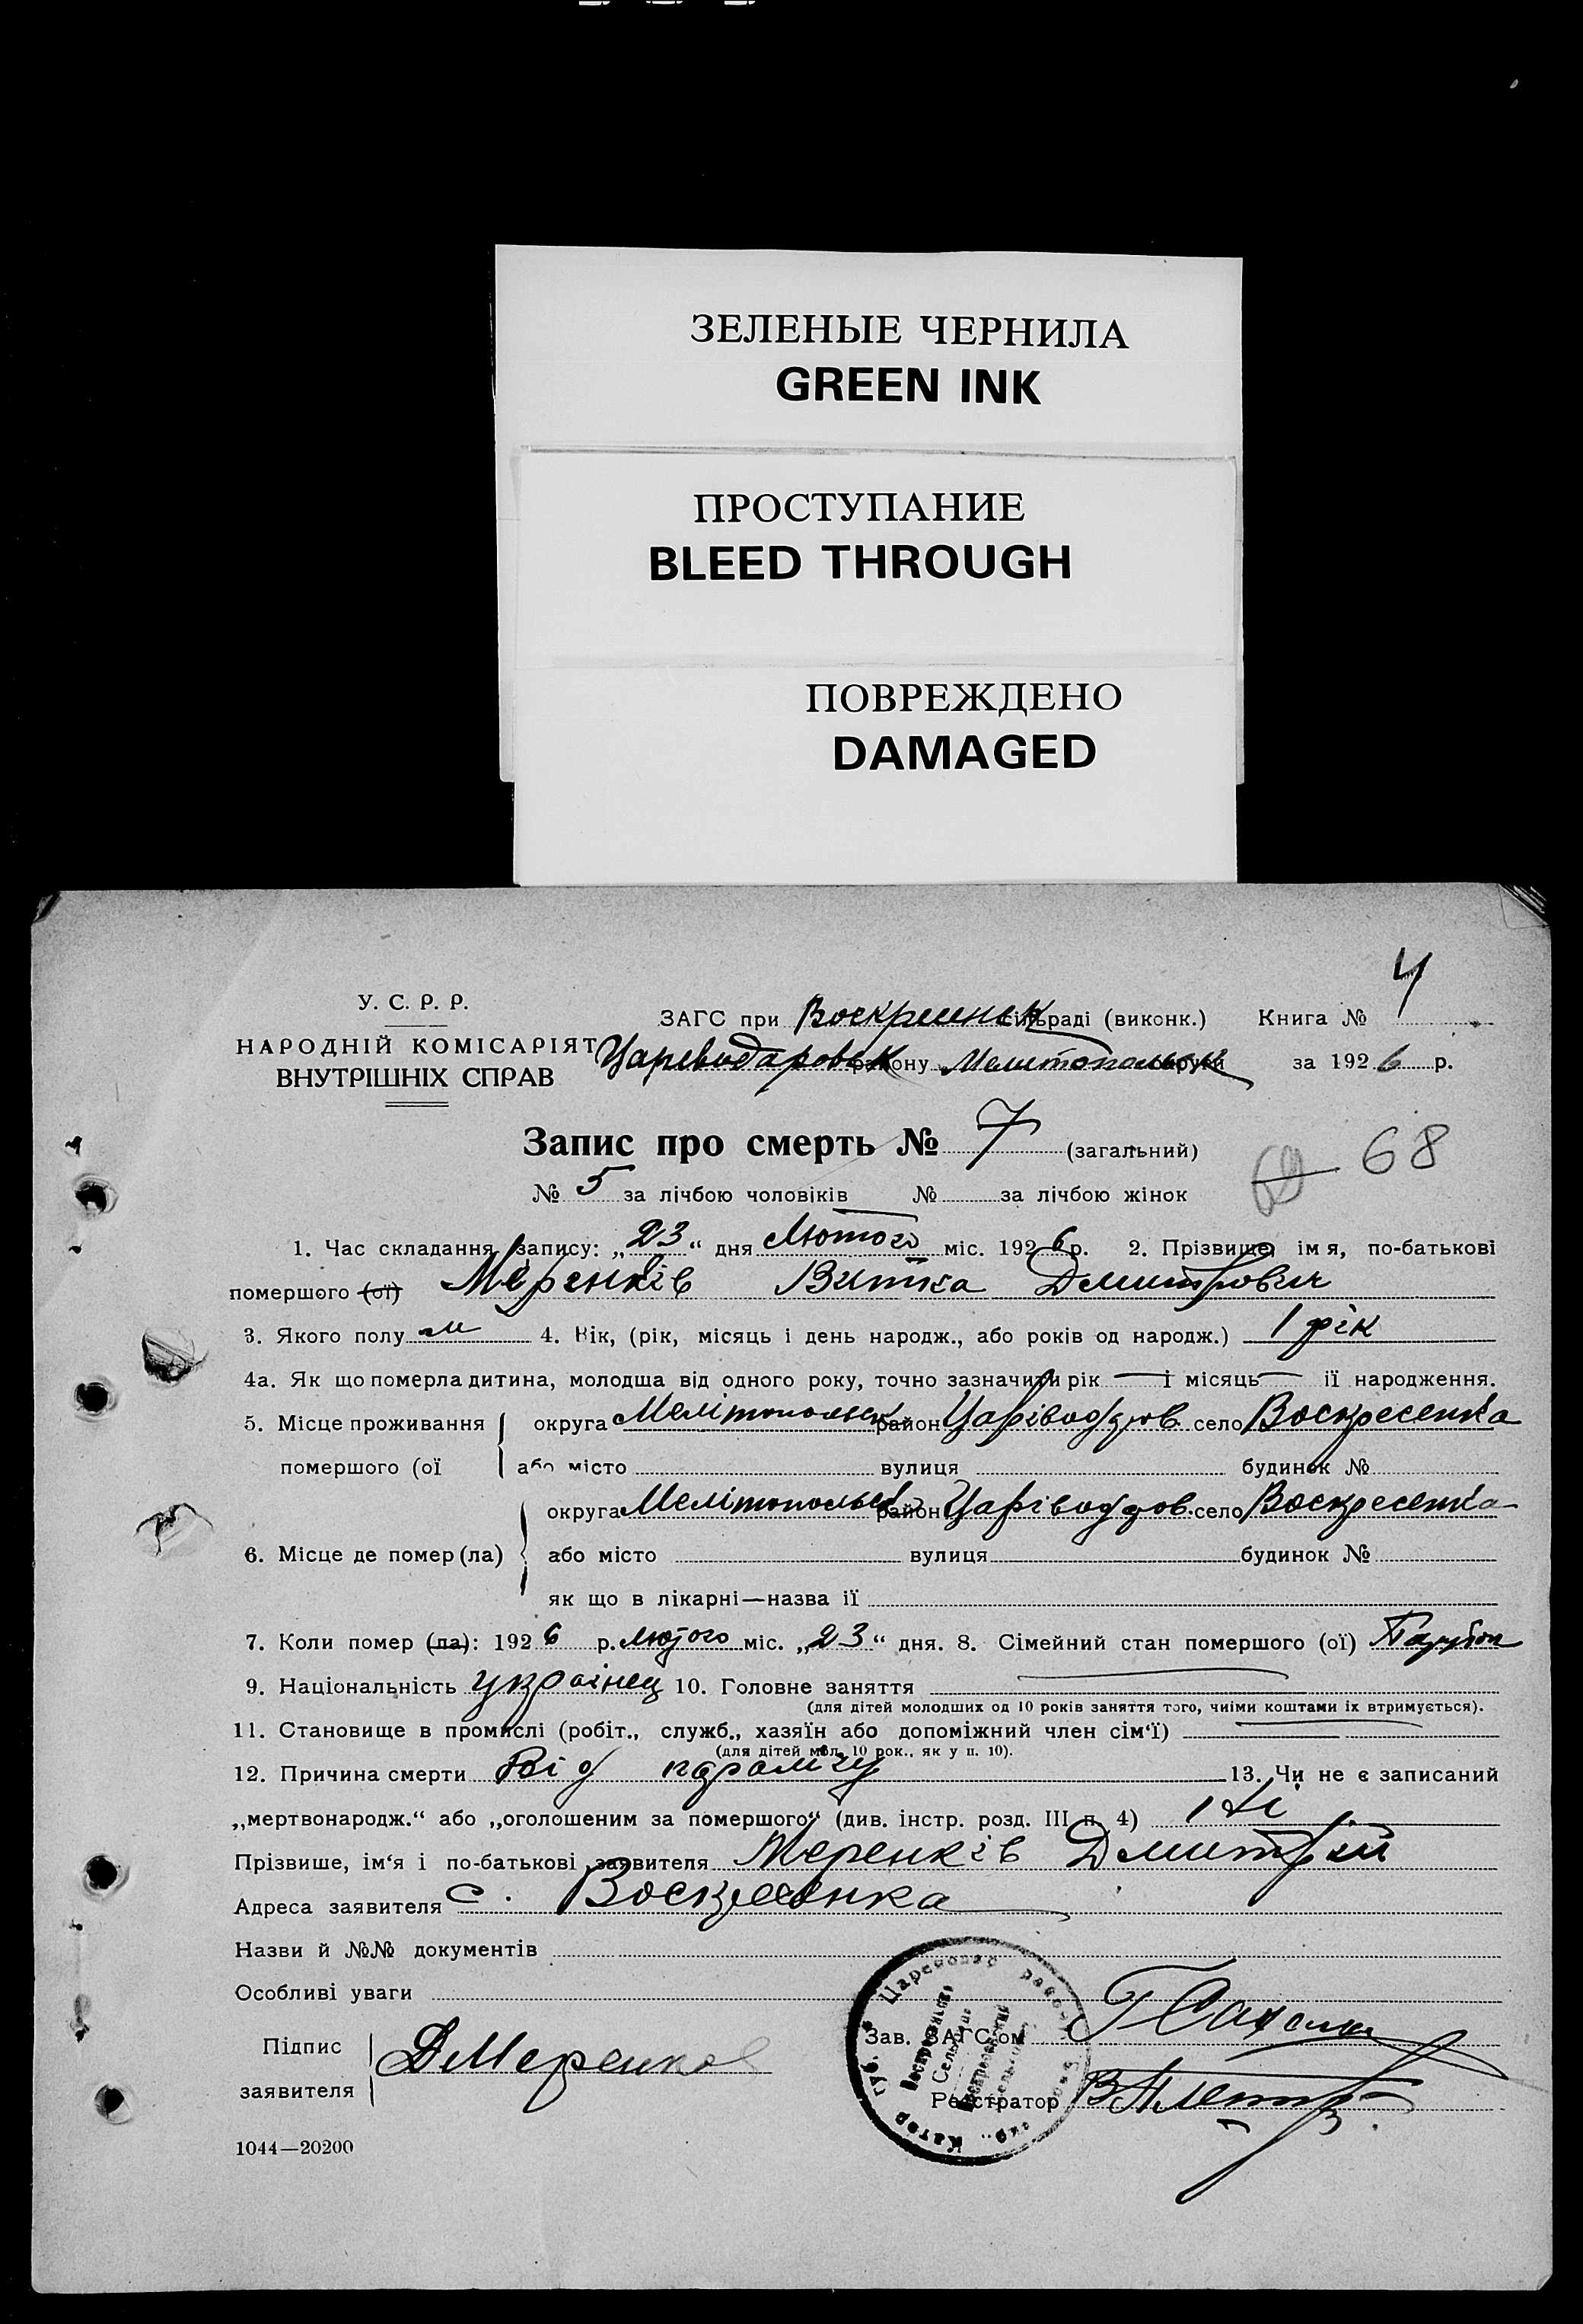 ЗЕЛЕНЫЕ ЧЕРНИЛА
GREEN INK
ПРОСТУПАНИЕ
BLEED THROUGH
ПОВРЕЖДЕНО
DAMAGED
У. С. Р. Р.
НАРОДНІЙ КОМІСАРІЯТ
ВНУТРІШНІХ СПРАВ
4
ЗАГС при Воскресенск сільраді (виконк.) Книга №
Цареводаровск району Мелитопольск округи за 1926 р.
Запис про смерть № 7 (загальний)
69 68
№ 5 за лічбою чоловіків № за лічбою жінок
1. Час складання запису: „23“ дня Лютого міс. 1926 р. 2. Прізвище, імя, по-батькові
помершого (ої) Меренків Витка Дмитрович
3. Якого полу м 4. Вік, (рік, місяць і день народж., або років од народж.) 1 рік
4а. Як що померла дитина, молодша від одного року, точно зазначити рік — і місяць — її народження.
5. Місце проживання округа Мелітопольск район Царіводаров. село Воскресенка
помершого (ої або місто вулиця будинок №
округа Мелітопольск район Царіводаров. село Воскресенка
6. Місце де помер (ла) або місто вулиця будинок №
як що в лікарні—назва її
7. Коли помер (ла): 1926 р. Лютого міс. „23“ дня. 8. Сімейний стан помершого (ої) Парубок
9. Національність українец 10. Головне заняття —
(для дітей молодших од 10 років заняття того, чиїми коштами їх втримується).
11. Становище в промислі (робіт., служб., хазяїн або допоміжний член сім‘ї) —
(для дітей мол. 10 рок., як у п. 10).
12. Причина смерти Від 13. Чи не є записаний
„мертвонародж.“ або „оголошеним за помершого“ (див. інстр. розд. III п. 4) Ні
Прізвище, ім‘я і по-батькові заявителя Меренків Дмитрій
Адреса заявителя с. Воскресенка
Назви й №№ документів
Особливі уваги
Підпис
заявителя
ДМеренков
Зав. ЗАГС‘ом
Реєстратор
1044—20200